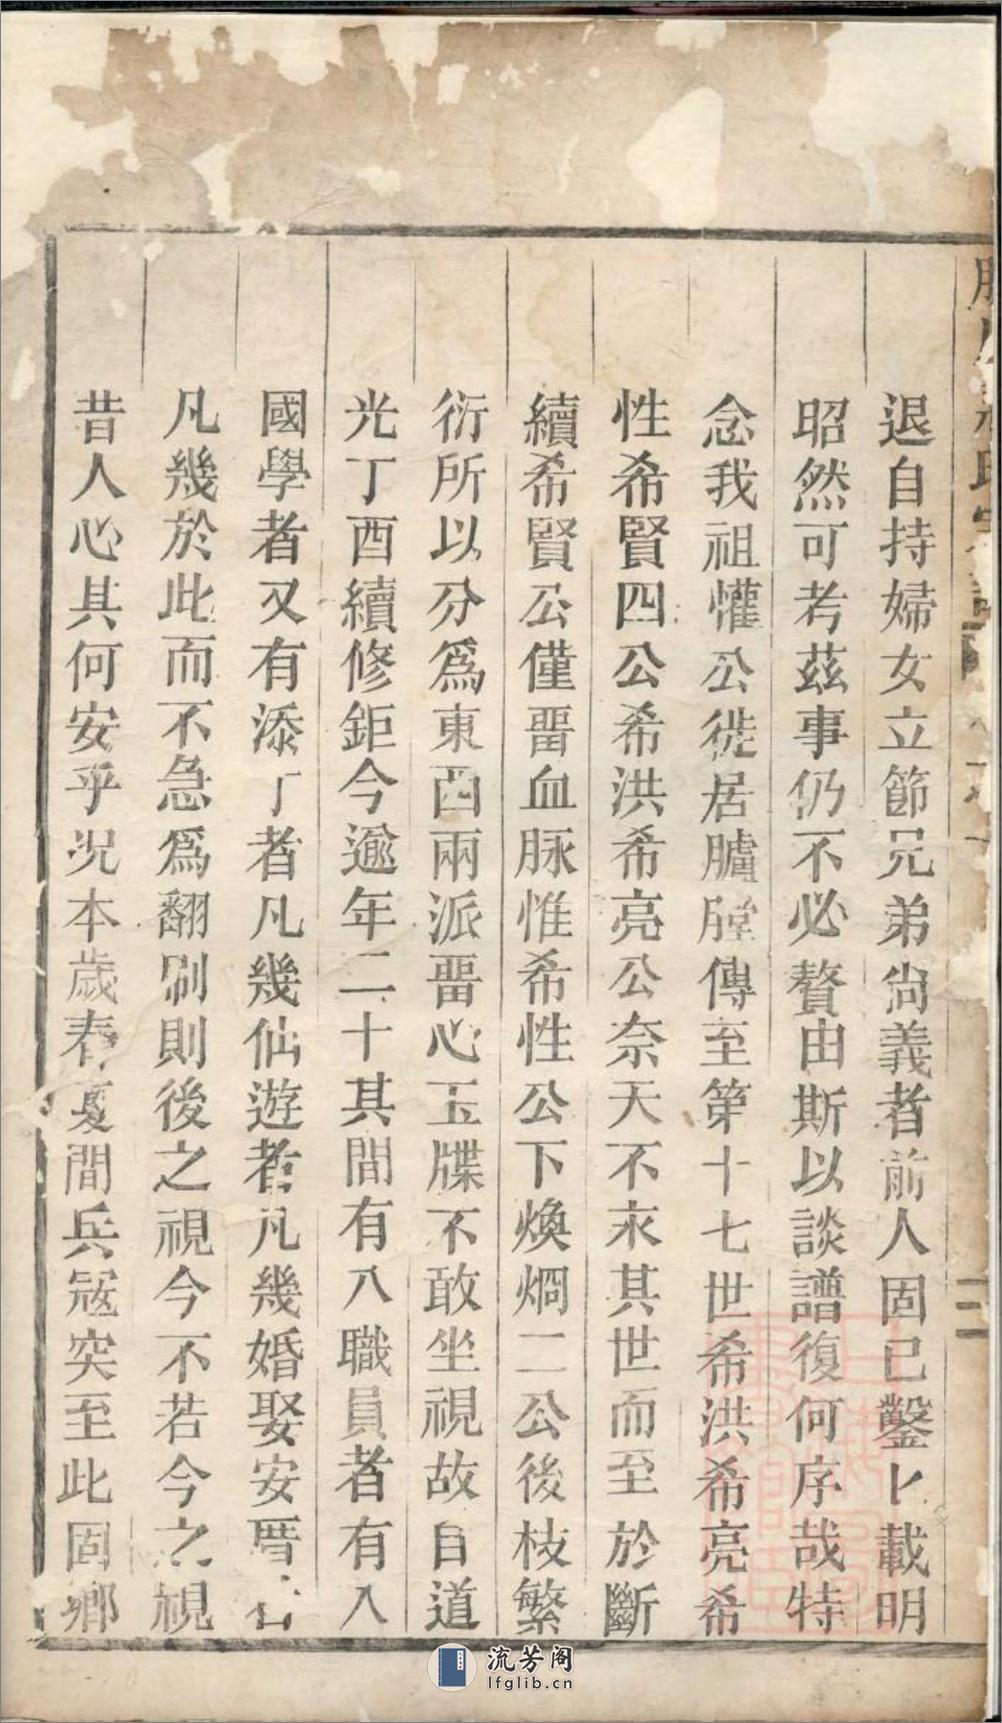 退自持婦女立節兄弟尚義者前人固已鑿卜載明
昭然可考茲事仍不必贅由斯以談譜復何序哉特
念我祖懽公徙居臚膛傳至第十七世希洪希亮希
性希賢四公希洪希亮公奈天不永其世而至於斷
續希賢公僅畱血脉惟希性公下煥烱二公後枝繁
衍所以分爲東西兩派畱心玉牒不敢坐視故自道
光丁酉續修鉅今逾年二十其間有入職員者有入
國學者又有添丁者凡幾仙遊者凡幾婚娶安厝者
凡幾於此而不急爲翻刷則後之視今不若今之視
昔人心其何安乎况本歲春夏間兵寇突至此固鄉
二
流芳阁
lfglib.cn